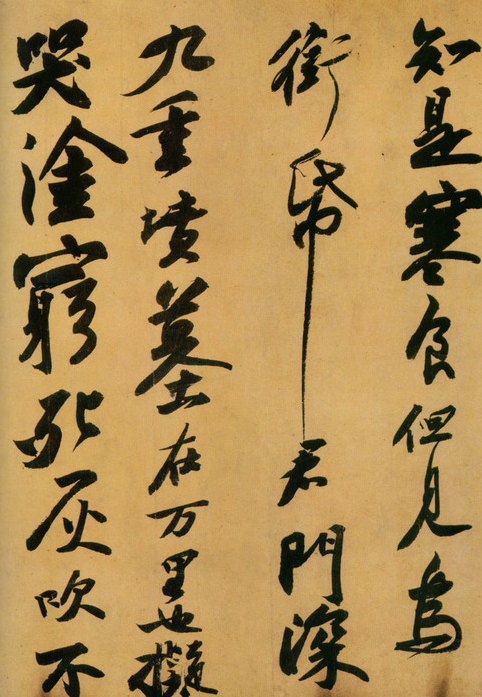 知是寒食但見烏
銜帋君門深
九重墳墓在万里也擬
哭塗窮死灰吹不